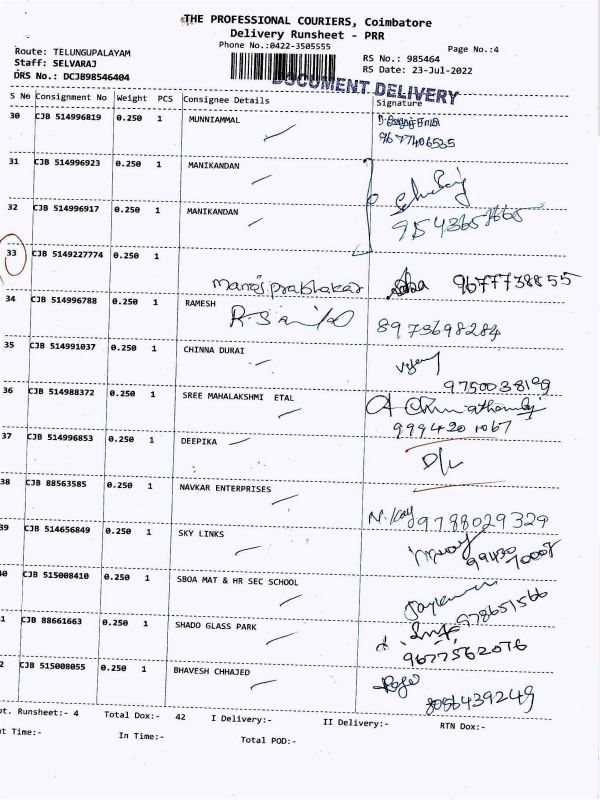 THE PROFESSIONAL COURIERS, Coimbatore
Delivery Runsheet - PRR
Phone No.:0422-3505555
Page No.:4
Route: TELUNGUPALAYAM
RS No.: 985464
Staff: SELVARAJ
RS Date: 23-Jul-2022
DRS No.: DCJB98546404
DOCUMENT DELIVERY
S No Consignment No Weight PCS Consignee Details Signature
30 CJB 514996819 0.250 1 MUNNIAMMAL
9677406535
31 CJB 514996923 0.250 1 MANIKANDAN
32 CJB 514996917 0.250 1 MANIKANDAN
33 CJB 5149227774 0.250 1
manoj prabhakar 9677738855
34 CJB 514996788 0.250 1 RAMESH
8973698284
35 CJB 514991037 0.250 1 CHINNA DURAI
9750038199
36 CJB 514988372 0.250 1 SREE MAHALAKSHMI ETAL
9994201067
37 CJB 514996853 0.250 1 DEEPIKA
D/L
38 CJB 88563585 0.250 1 NAVKAR ENTERPRISES
9788029329
39 CJB 514656849 0.250 1 SKY LINKS
99430
70007
40 CJB 515008410 0.250 1 SBOA MAT & HR SEC SCHOOL
978651566
1 CJB 88661663 0.250 1 SHADO GLASS PARK
9677562076
2 CJB 515008055 0.250 1 BHAVESH CHHAJED
8056439249
ot. Runsheet:- 4 Total Dox:- 42 I Delivery:- II Delivery:- RTN Dox:-
t Time:- In Time:- Total POD:-